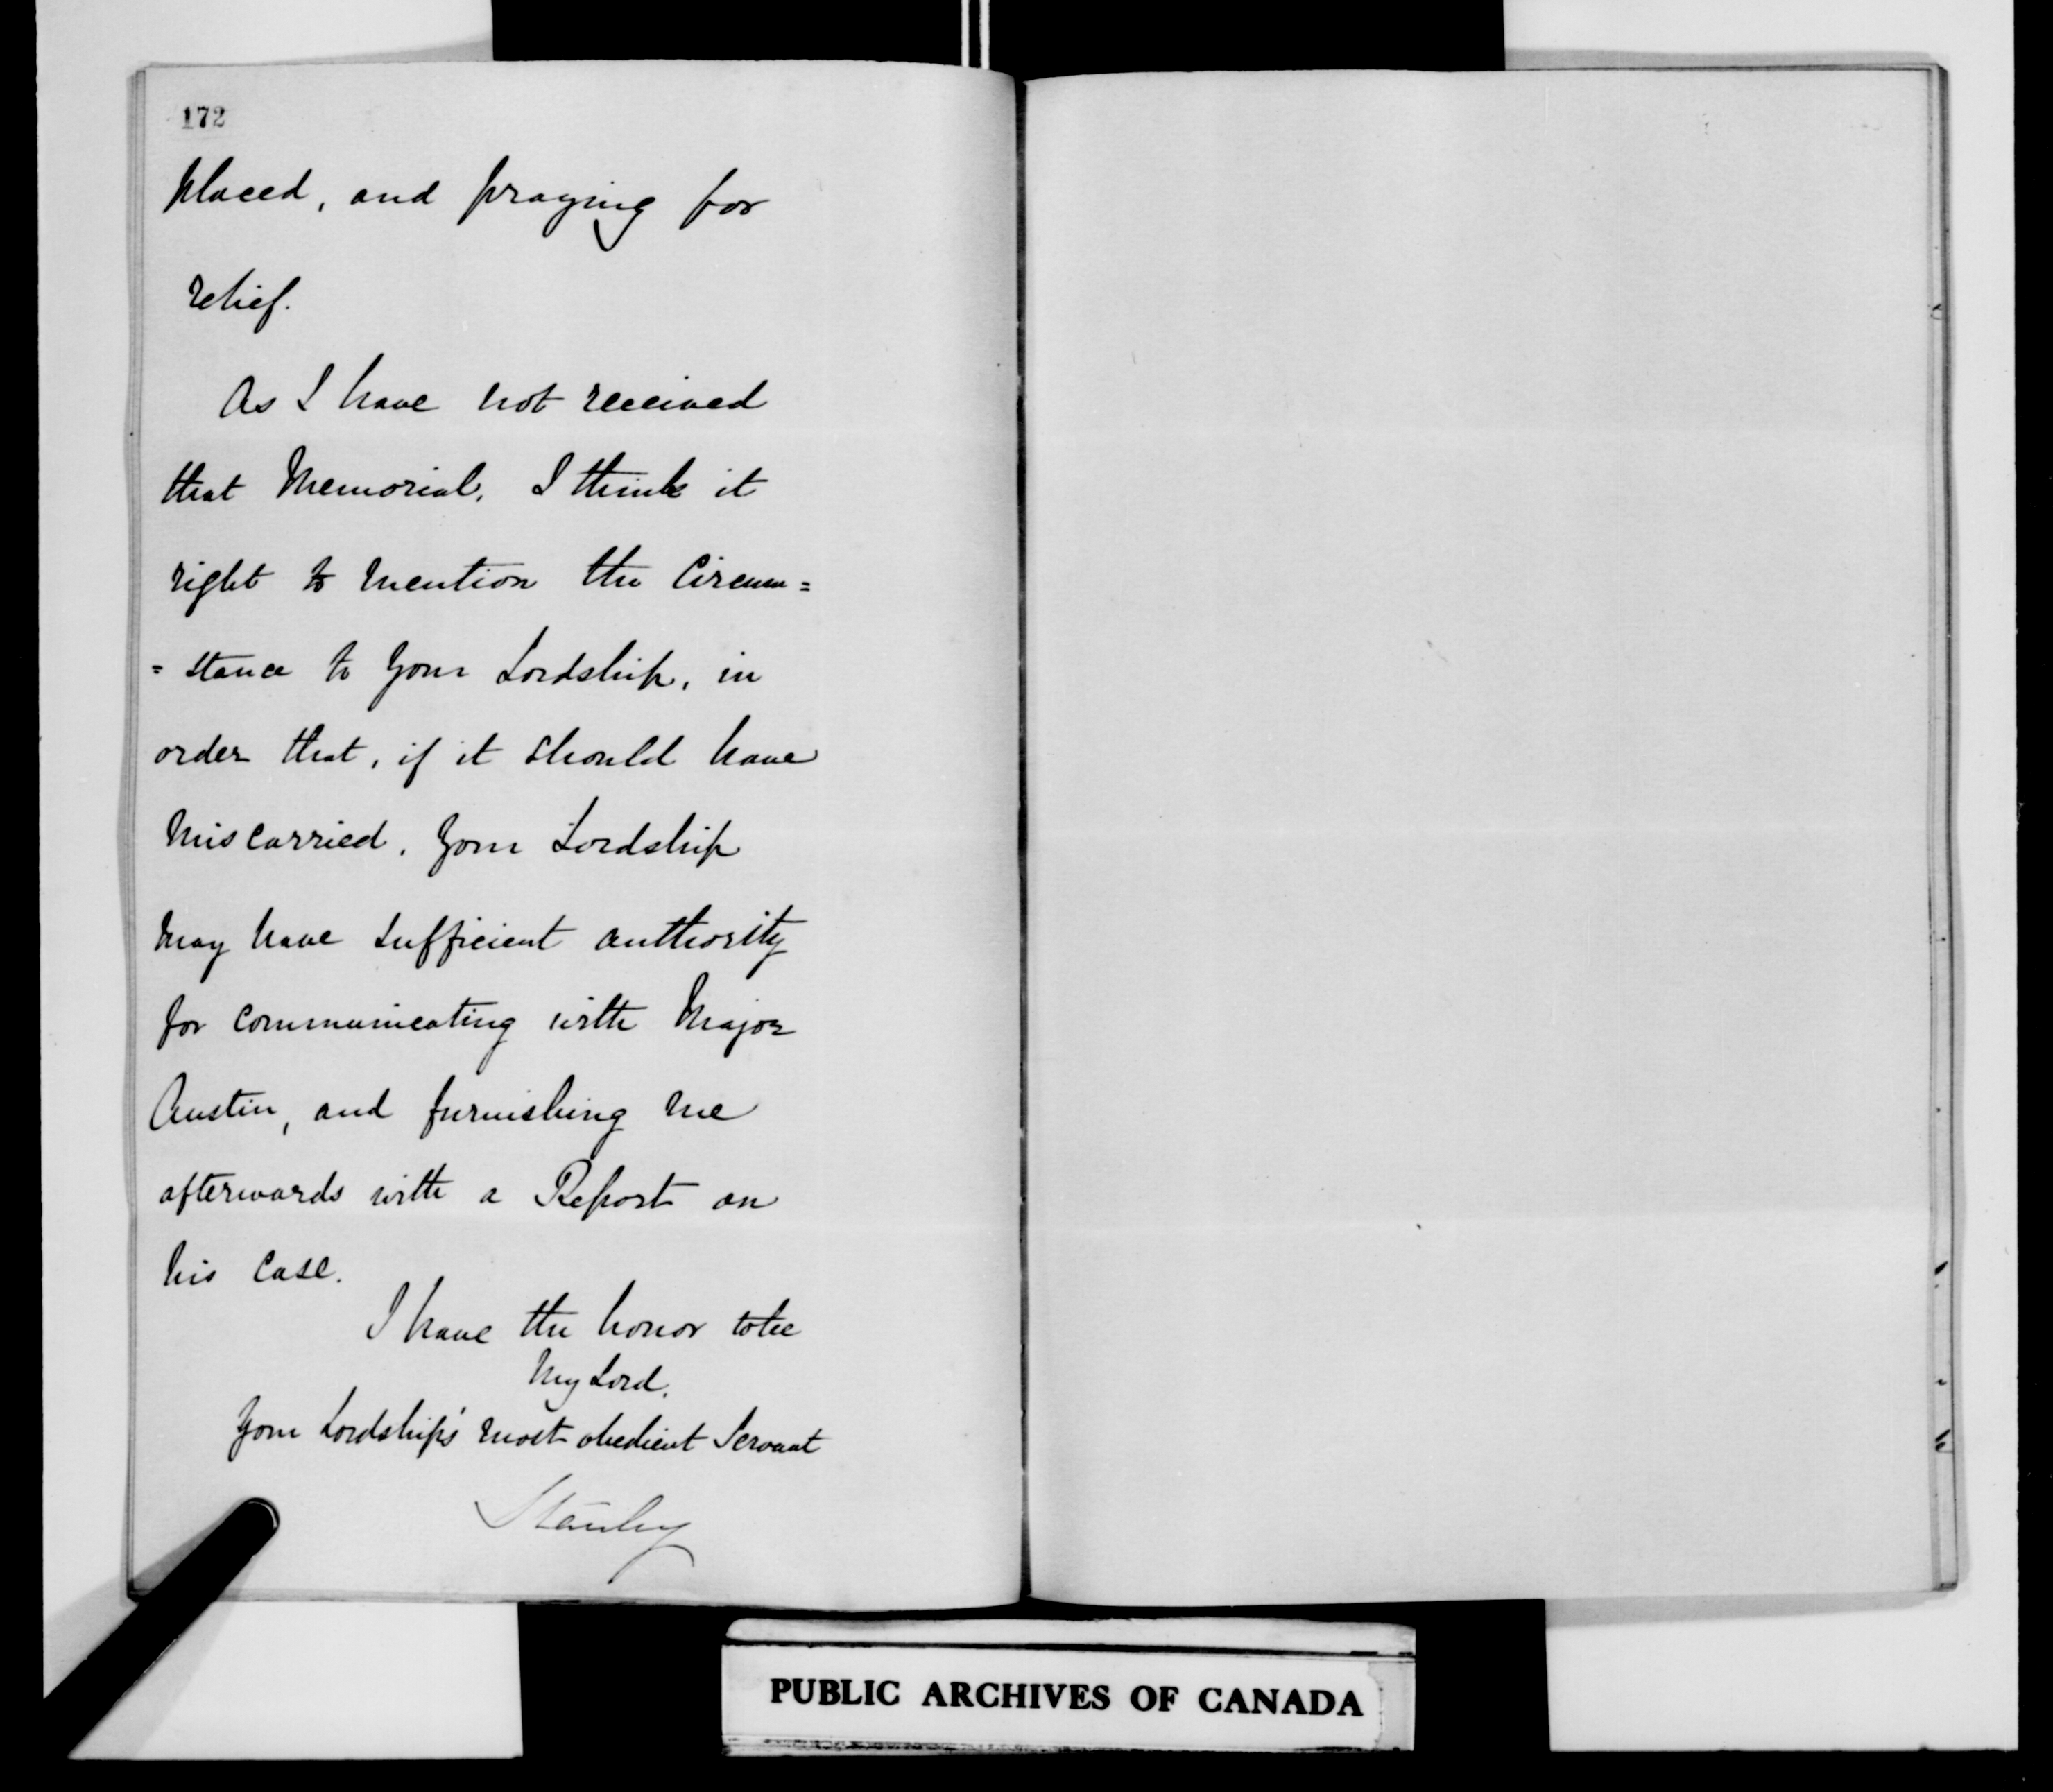 172
placed, and praying for
relief.
As I have not received
that Memorial, I think it
right to mention the Circum=
=stance to Your Lordship, in
order that, if it should have
miscarried, Your Lordship
may have sufficient authority
for communicating with Major
Austin, and furnishing me
afterwards with a Report on
his case.
I have the honor to be
My Lord,
Your Lordship's most obedient Servant
Stanley
PUBLIC ARCHIVES OF CANADA